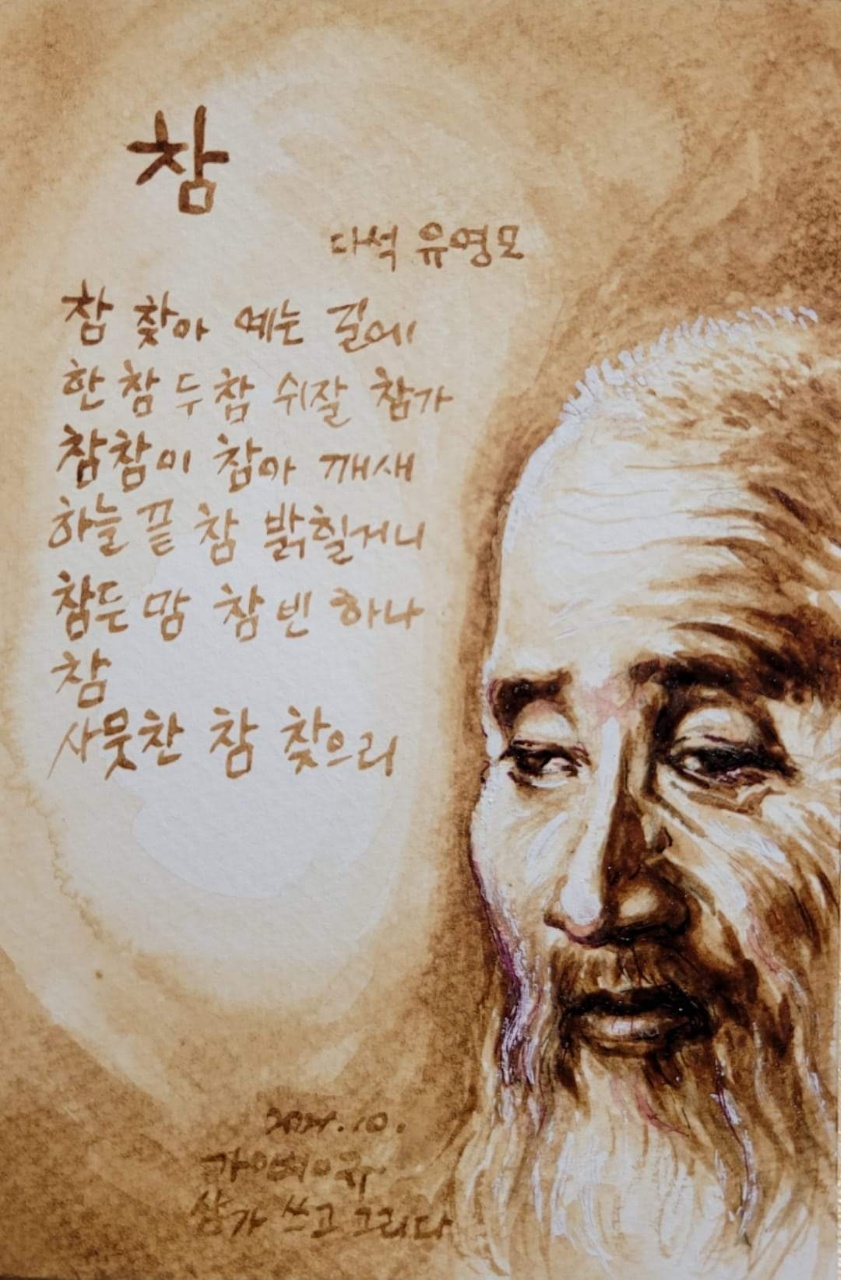 참
다석 유영모
참 찾아 예는 길에
한 참 두 참 쉬잘 참가
참참이 참아 깨새
하늘 끝 참 밝힐거니
참든 맘 참 빈 하나
참
사뭇찬 참 찾으리
10.
쓰고 그리다